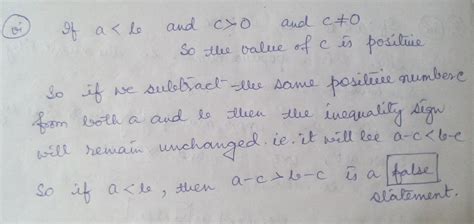 (vi) If a < b and c > 0 and c ≠ 0
So the value of c is positive
So if we subtract the same positive number c
from both a and b then the inequality sign
will remain unchanged. i.e. it will be a-c < b-c
So if a < b, then a-c > b-c is a false
statement.